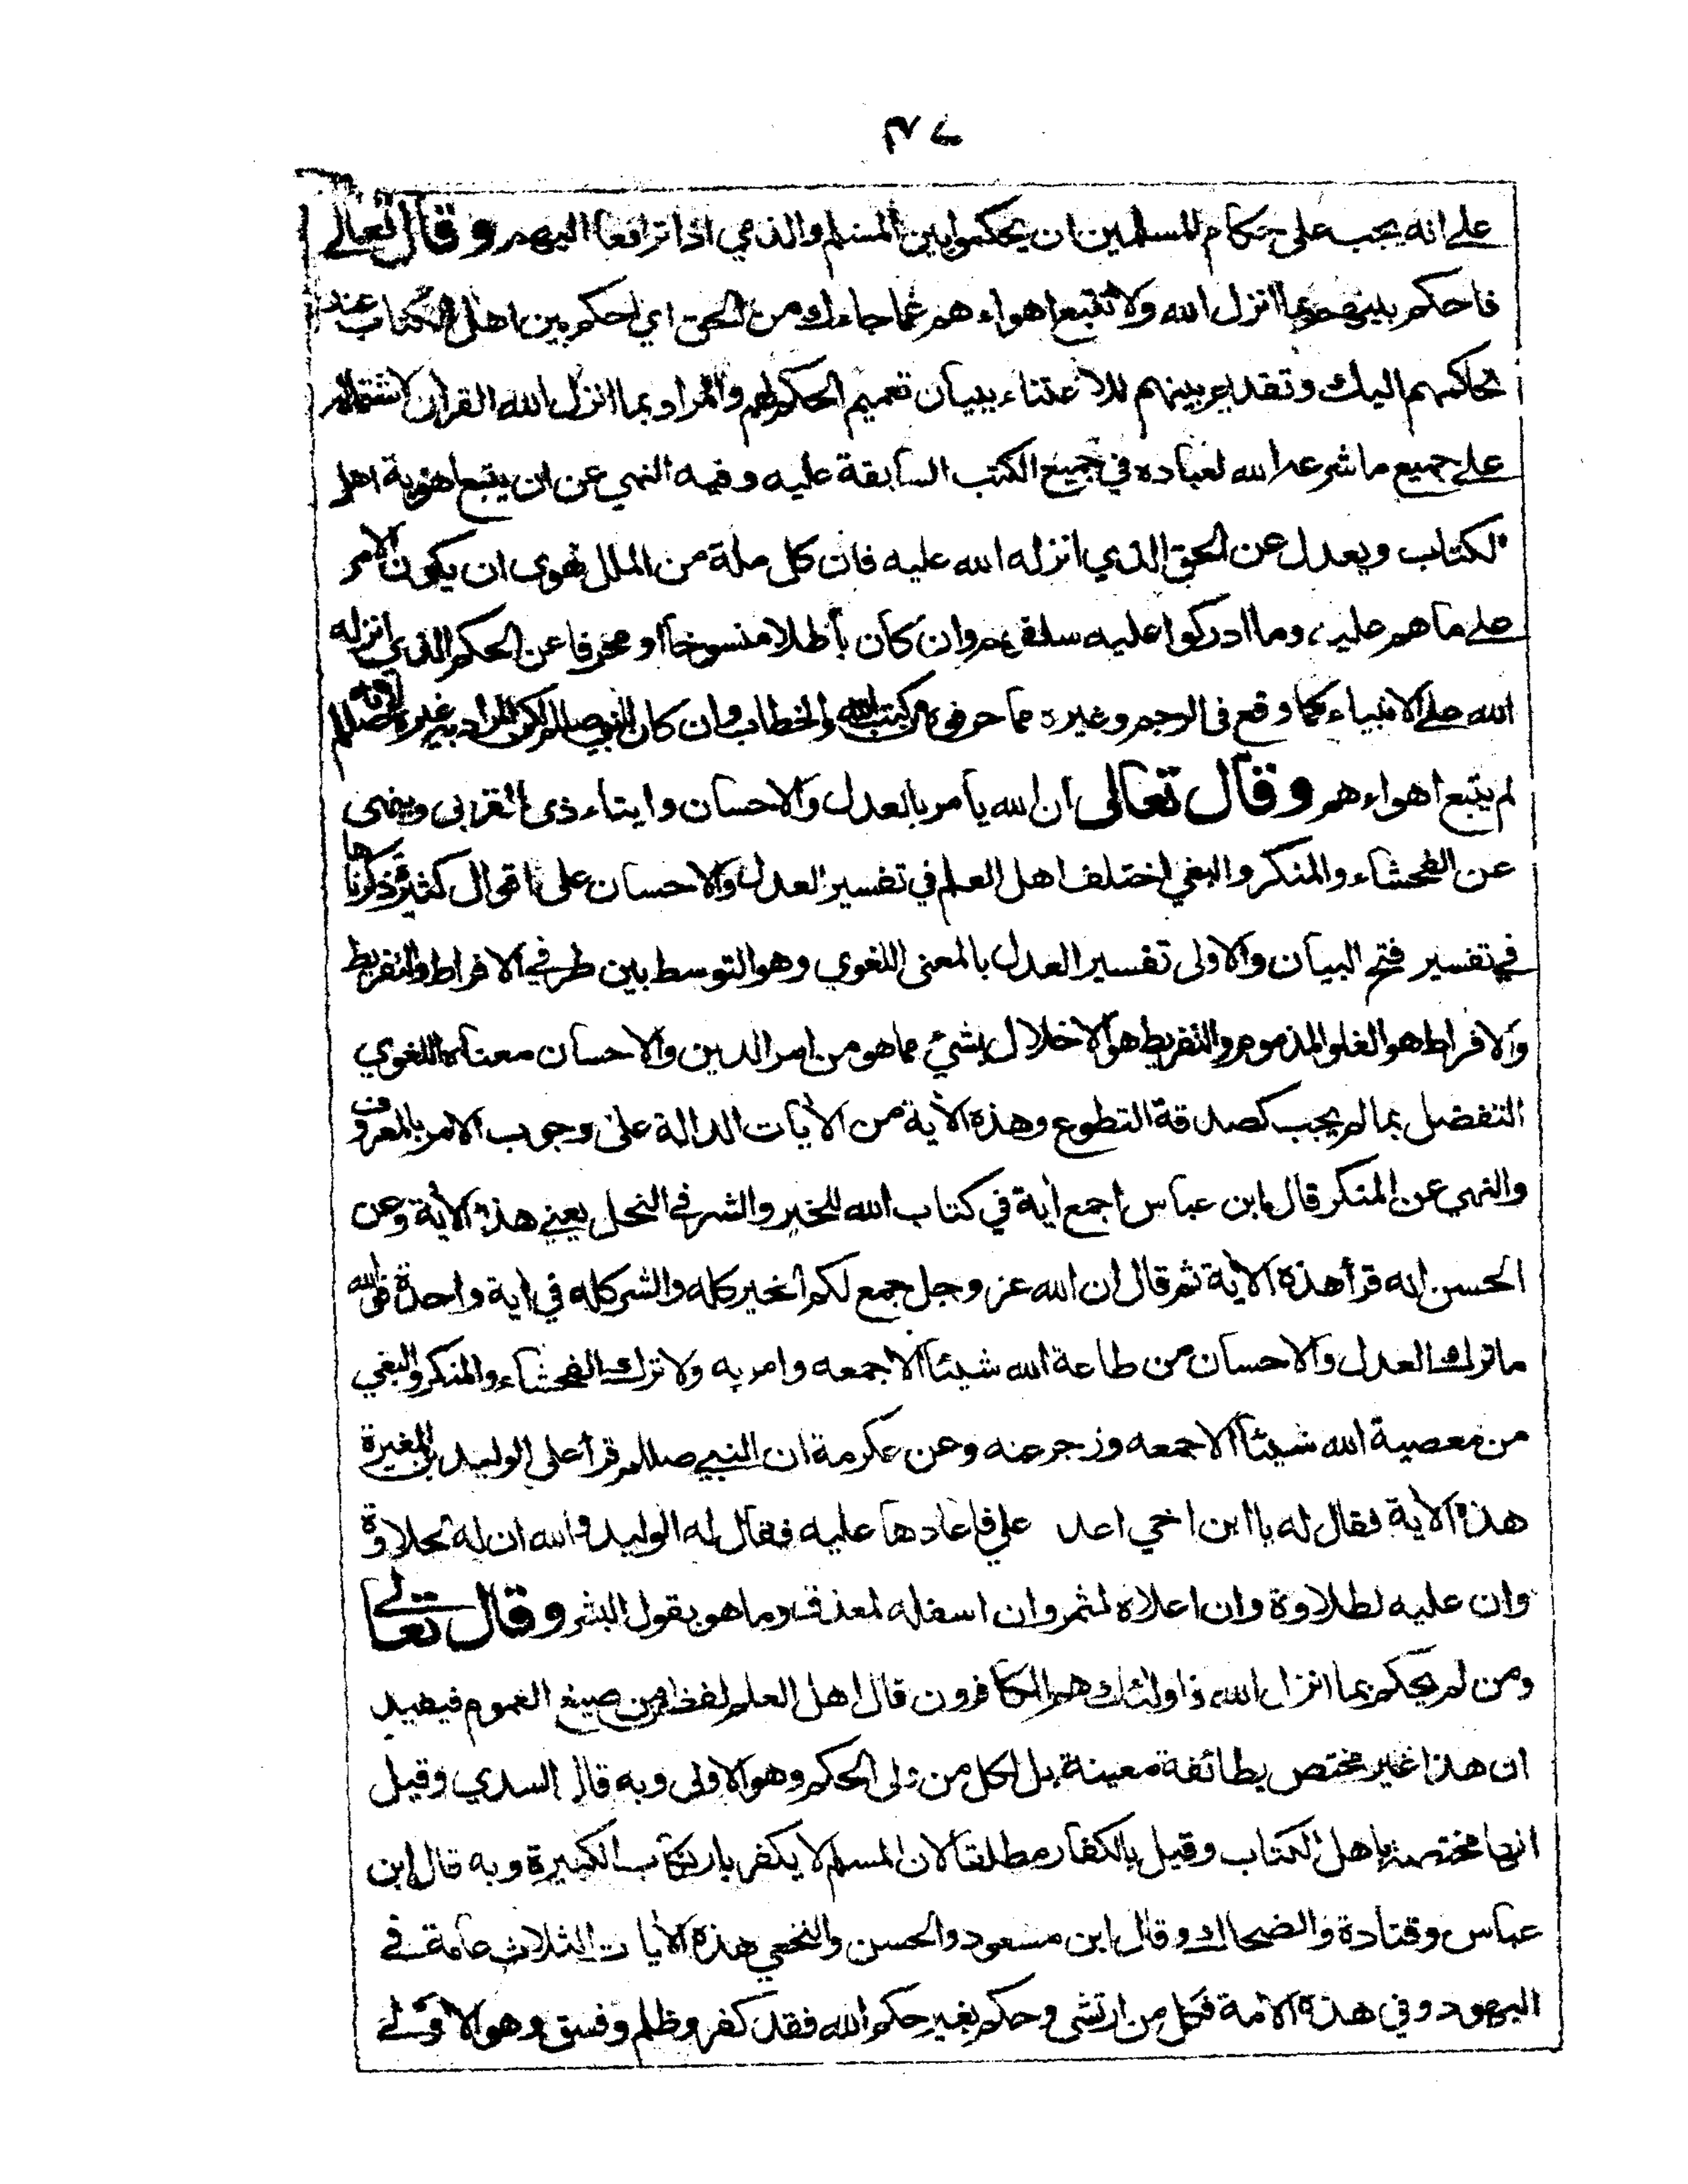 على انه يجب على حكام المسلمين ان يحكموا بين المسلم والذمي اذا ترافعا اليهم وقال تعالى
فاحكم بينهم بما انزل الله ولا تتبع اهواءهم عما جاءك من الحق اي احكم بين اهل الكتاب عند
تحاكمهم اليك وتقديم بينهم للاعتناء ببيان تعميم الحكم لهم والمراد بما انزل الله القران لاشتماله
على جميع ما شرعه الله لعباده في جميع الكتب السابقة عليه وفيه النهي عن ان يتبع اهوية اهل
الكتاب ويعدل عن الحق الذي انزله الله عليه فان كل ملة من الملل تهوى ان يكون الامر
على ما هم عليه وما ادركوا عليه سلفهم وان كان باطلا منسوخا او محرفا عن الحكم الذي انزله
الله على الانبياء كما وقع في الرجم وغيره مما حرفوه من كتب الله والخطاب وان كان للنبي صللم لكن المراد به غيره لانه صللم
لم يتبع اهواءهم وقال تعالى ان الله يأمر بالعدل والاحسان وايتاء ذى القربى وينهى
عن الفحشاء والمنكر والبغي اختلف اهل العلم في تفسير العدل والاحسان على اقوال كثيرة ذكرناها
في تفسير فتح البيان والاولى تفسير العدل بالمعنى اللغوي وهو التوسط بين طرفي الافراط والتفريط
والافراط هو الغلو المذموم والتفريط هو الاخلال بشيء مما هو من امر الدين والاحسان معناه اللغوي
التفضل بما لم يجب كصدقة التطوع وهذه الآية من الآيات الدالة على وجوب الامر بالمعروف
والنهي عن المنكر قال ابن عباس اجمع آية في كتاب الله للخير والشر في النحل يعني هذه الآية وعن
الحسن انه قرأ هذه الآية ثم قال ان الله عز وجل جمع لكم الخير كله والشر كله في اية واحدة فوالله
ما ترك العدل والاحسان من طاعة الله شيئا الا جمعه وامر به ولا ترك الفحشاء والمنكر والبغي
من معصية الله شيئا الا جمعه وزجر عنه وعن عكرمة ان النبي صللم قرأ على الوليد بن المغيرة
هذه الآية فقال له يا ابن اخي اعد علي فاعادها عليه فقال له الوليد والله ان له لحلاوة
وان عليه لطلاوة وان اعلاه لمثمر وان اسفله لمغذف وما هو بقول البشر وقال تعالى
ومن لم يحكم بما انزل الله فاولئك هم الكافرون قال اهل العلم لفظ من من صيغ العموم فيفيد
ان هذا غير مختص بطائفة معينة بل لكل من ولى الحكم وهو الاولى وبه قال السدي وقيل
انها مختصة باهل الكتاب وقيل بالكفار مطلقا لان المسلم لا يكفر بارتكاب الكبيرة وبه قال ابن
عباس وقتادة والضحاك وقال ابن مسعود والحسن والنخعي هذه الآيات الثلاث عامة في
اليهود وفي هذه الامة فكل من ارتشى وحكم بغير حكم الله فقد كفر وظلم وفسق وهو الاولى